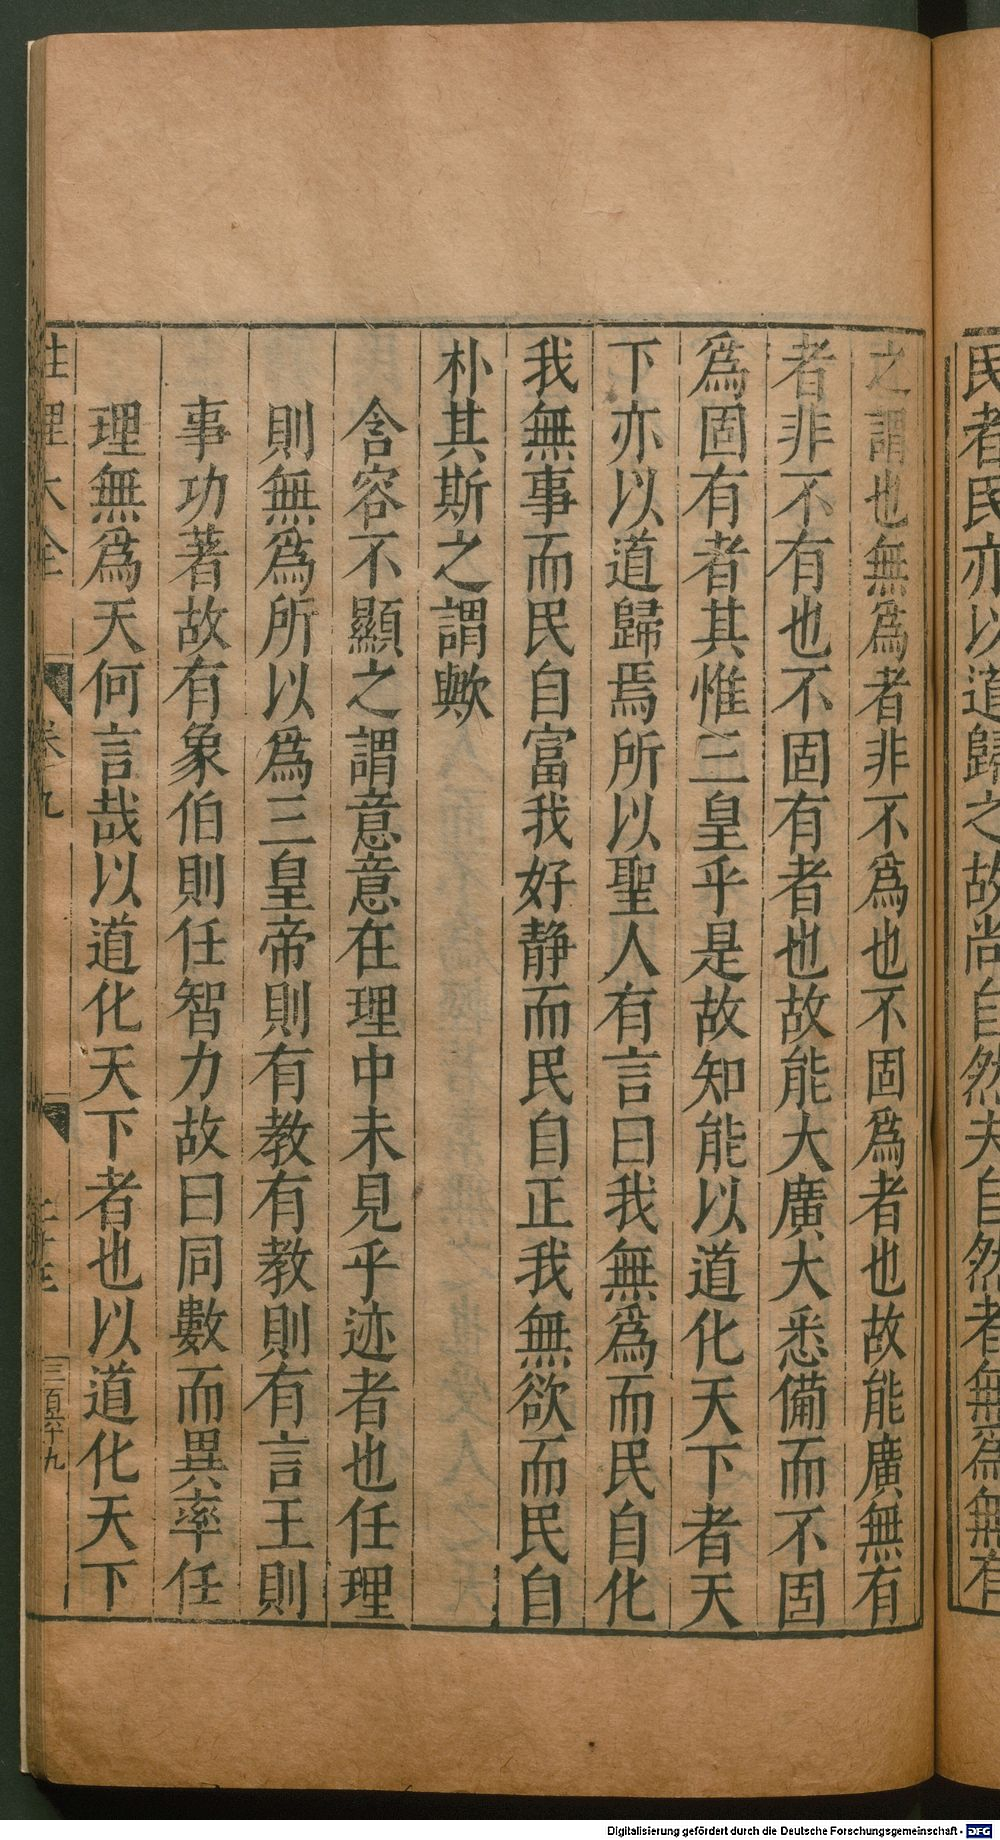 民者民亦以道歸之故尚自然夫自然者無為無有
之謂也無爲者非不爲也不固爲者也故能廣無有
者非不有也不固有者也故能大廣大悉備而不固
爲固有者其惟三皇乎是故知能以道化天下者天
下亦以道歸焉所以聖人有言曰我無爲而民自化
我無事而民自富我好静而民自正我無欲而民自
朴其斯之謂歟
含容不顯之謂意意在理中未見乎迹者也任理
則無爲所以爲三皇帝則有教有教則有言王則
事功著故有象伯則任智力故曰同數而異率任
理無爲天何言哉以道化天下者也以道化天下
性理大全 卷九 三百五十九
Digitalisierung gefördert durch die Deutsche Forschungsgemeinschaft - DFG